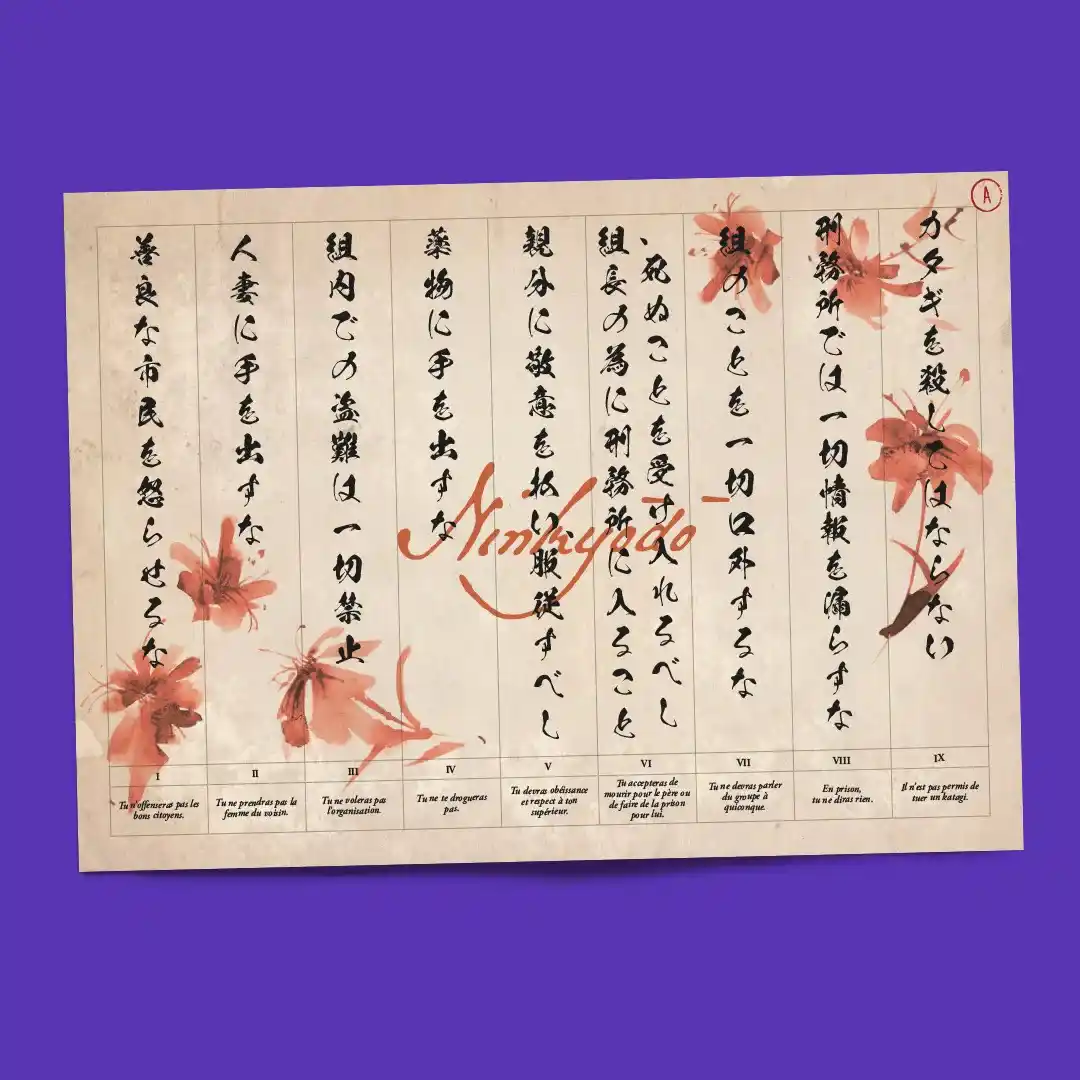 A
善良な市民を怒らせるな
人妻に手を出すな
組内での盗難は一切禁止
薬物に手を出すな
親分に敬意を払い、服従すべし
組長の為に刑務所に入ること
、死ぬことを受け入れるべし
組のことを一切口外するな
刑務所では一切情報を漏らすな
カタギを殺してはならない
Ninkyōdō
I
Tu n'offenseras pas les
bons citoyens.
II
Tu ne prendras pas la
femme du voisin.
III
Tu ne voleras pas
l'organisation.
IV
Tu ne te drogueras
pas.
V
Tu devras obéissance
et respect à ton
supérieur.
VI
Tu accepteras de
mourir pour le père ou
de faire de la prison
pour lui.
VII
Tu ne devras parler
du groupe à
quiconque.
VIII
En prison,
tu ne diras rien.
IX
Il n'est pas permis de
tuer un katagi.